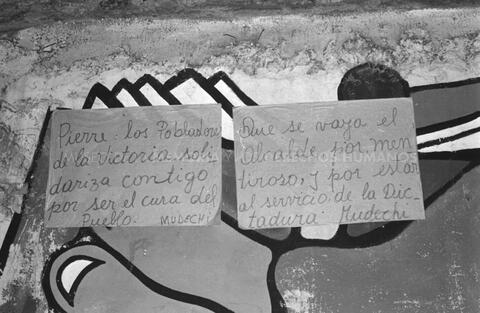 Pierre: los Pobladore
de la Victoria soli
dariza contigo
por ser el cura del
Pueblo. MUDECHI
Que se vaya el
Alcalde por men
tiroso, y por estar
al servicio de la Dic-
tadura. Mudechi